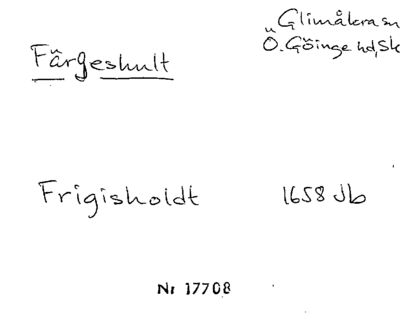 Glimåkra sn
Färgeshult
Ö. Göinge hd, Sk
Frigisholdt 1658 Jb
Nr 17708